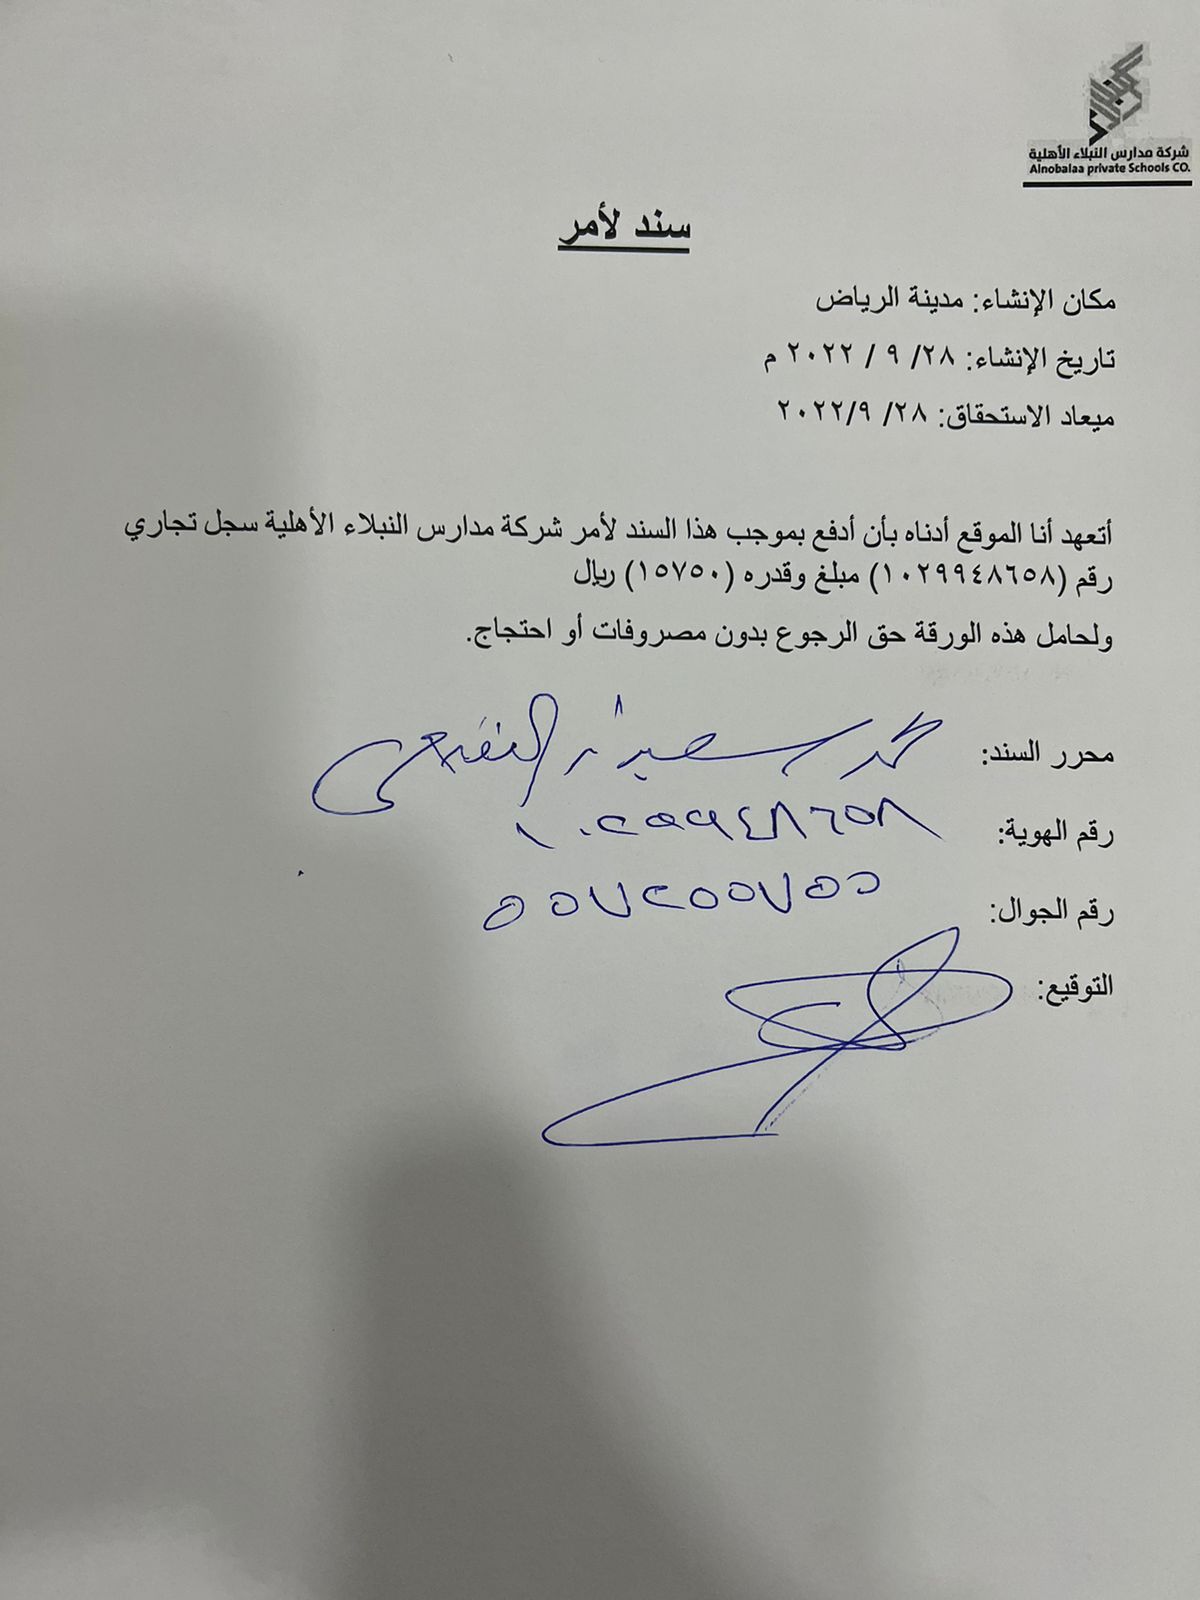 شركة مدارس النبلاء الأهلية
Alnobalaa private Schools CO.
سند لأمر
مكان الإنشاء: مدينة الرياض
تاريخ الإنشاء: ٢٨/ ٩ / ٢٠٢٢ م
ميعاد الاستحقاق: ٢٨/ ٢٠٢٢/٩
أتعهد أنا الموقع أدناه بأن أدفع بموجب هذا السند لأمر شركة مدارس النبلاء الأهلية سجل تجاري
رقم (١٠٢٩٩٤٨٦٥٨) مبلغ وقدره (١٥٧٥٠) ريال
ولحامل هذه الورقة حق الرجوع بدون مصروفات أو احتجاج.
محرر السند: محمد سعيد
رقم الهوية: ١٠٢٩٩٤٨٦٥٨
رقم الجوال: ٠٥٥٧٢٥٥٧٥٥
التوقيع: